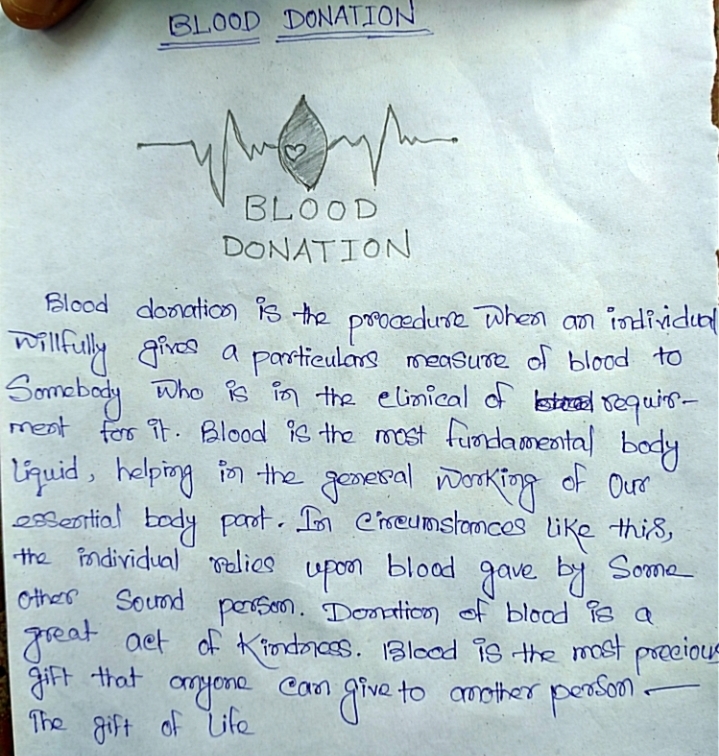 BLOOD DONATION
BLOOD
DONATION
Blood donation is the procedure when an individual
willfully gives a particulars measure of blood to
Somebody who is in the clinical of requir-
ment for it. Blood is the most fundamental body
liquid, helping in the general working of our
essential body part. In circumstances like this,
the individual relies upon blood gave by some
other sound person. Donation of blood is a
great act of kindness. Blood is the most precious
gift that anyone can give to another person —
The gift of life